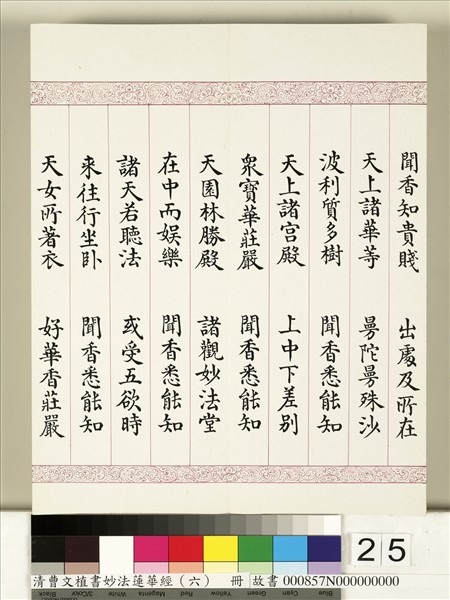 聞香知貴賤　出處及所在
天上諸華等　曼陀曼殊沙
波利質多樹　聞香悉能知
天上諸宮殿　上中下差別
衆寶華莊嚴　聞香悉能知
天園林勝殿　諸觀妙法堂
在中而娛樂　聞香悉能知
諸天若聽法　或受五欲時
来往行坐卧　聞香悉能知
天女所著衣　好華香莊嚴
25
Black 3/Color White Magenta Red Yellow Green Cyan Blue
清曹文植書妙法蓮華經（六）　冊 故書 000857N000000000